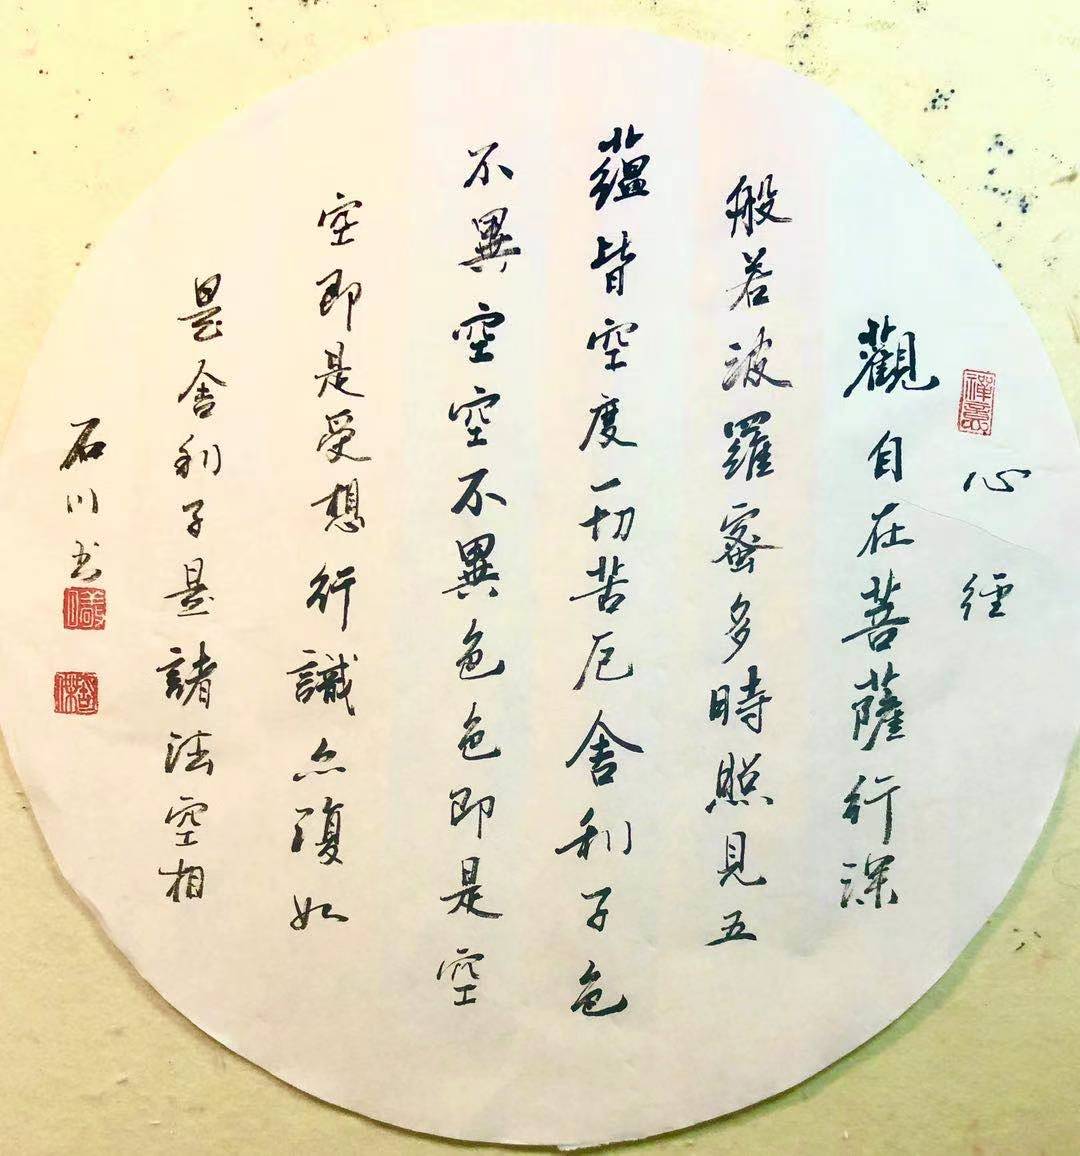 禪意
心經
觀自在菩薩行深
般若波羅蜜多時照見五
蘊皆空度一切苦厄舍利子色
不異空空不異色色即是空
空即是受想行識亦復如
是舍利子是諸法空相
石川书